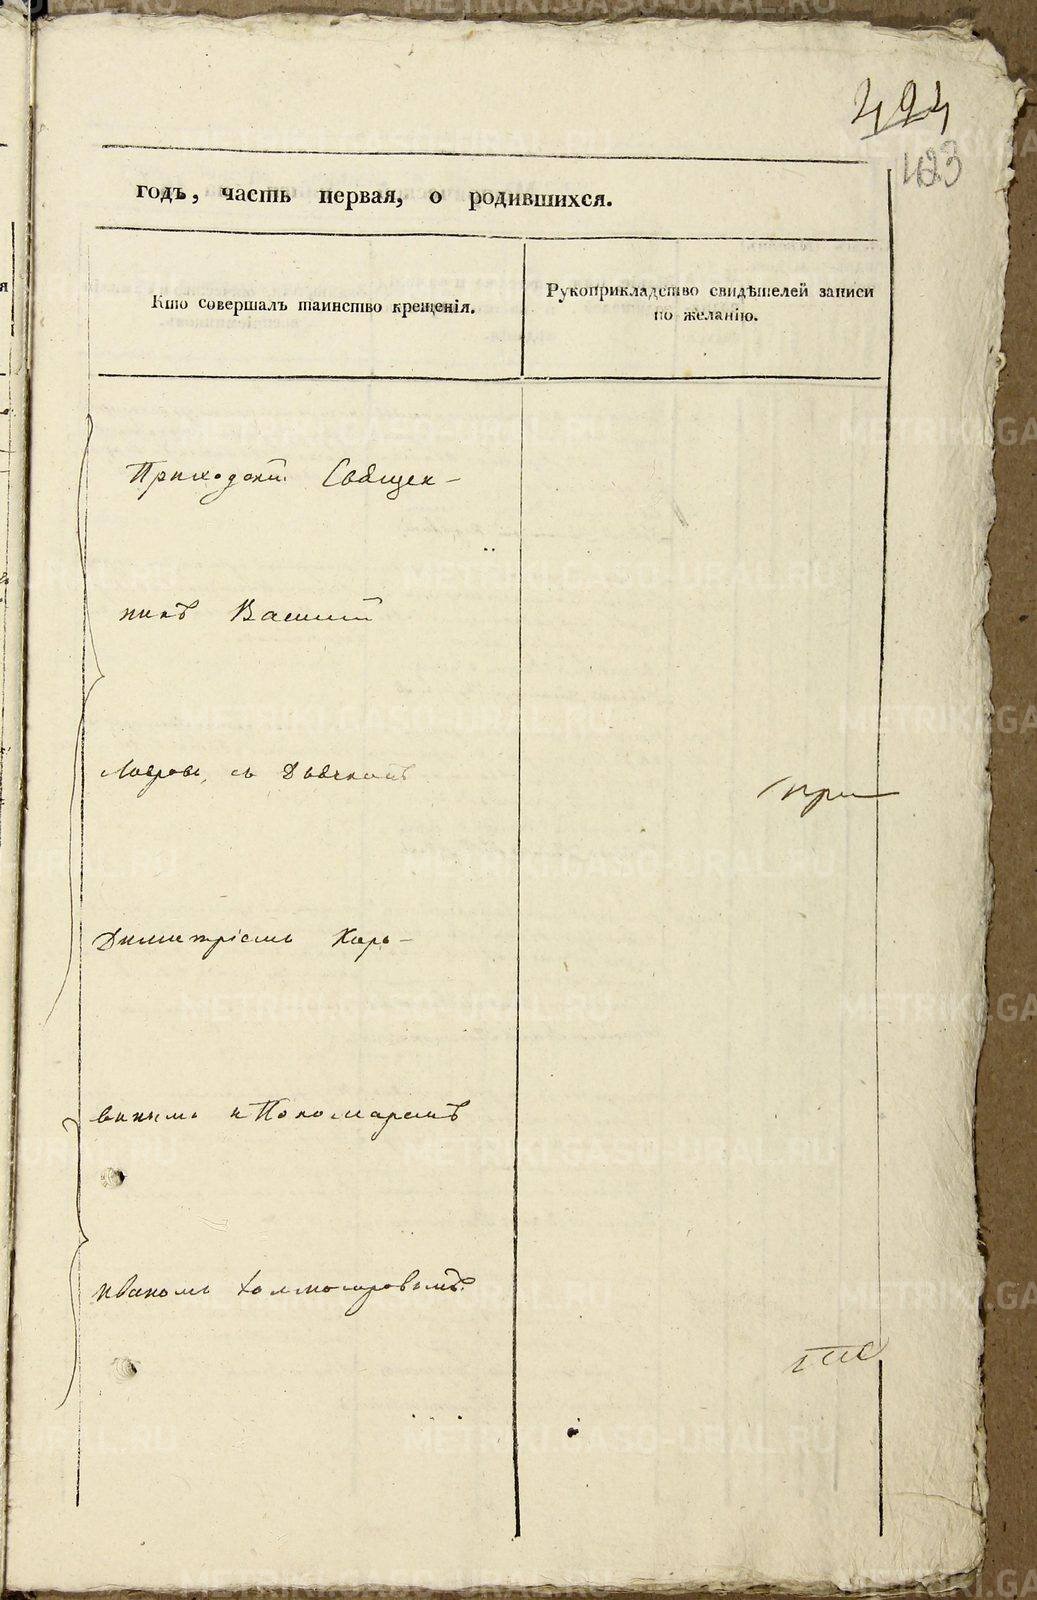 424
423
годъ, часть первая, о родившихся.
Кто совершалъ таинство крещенія.
Рукоприкладство свидѣтелей записи
по желанію.
Приходскій Священ-
никъ Василій
Лавровъ, съ Дьячкомъ
при
Димитріемъ Каро-
внинымъ и Пономаремъ
Иваномъ Холмогоровымъ.
METRIKI.GASO-URAL.RU